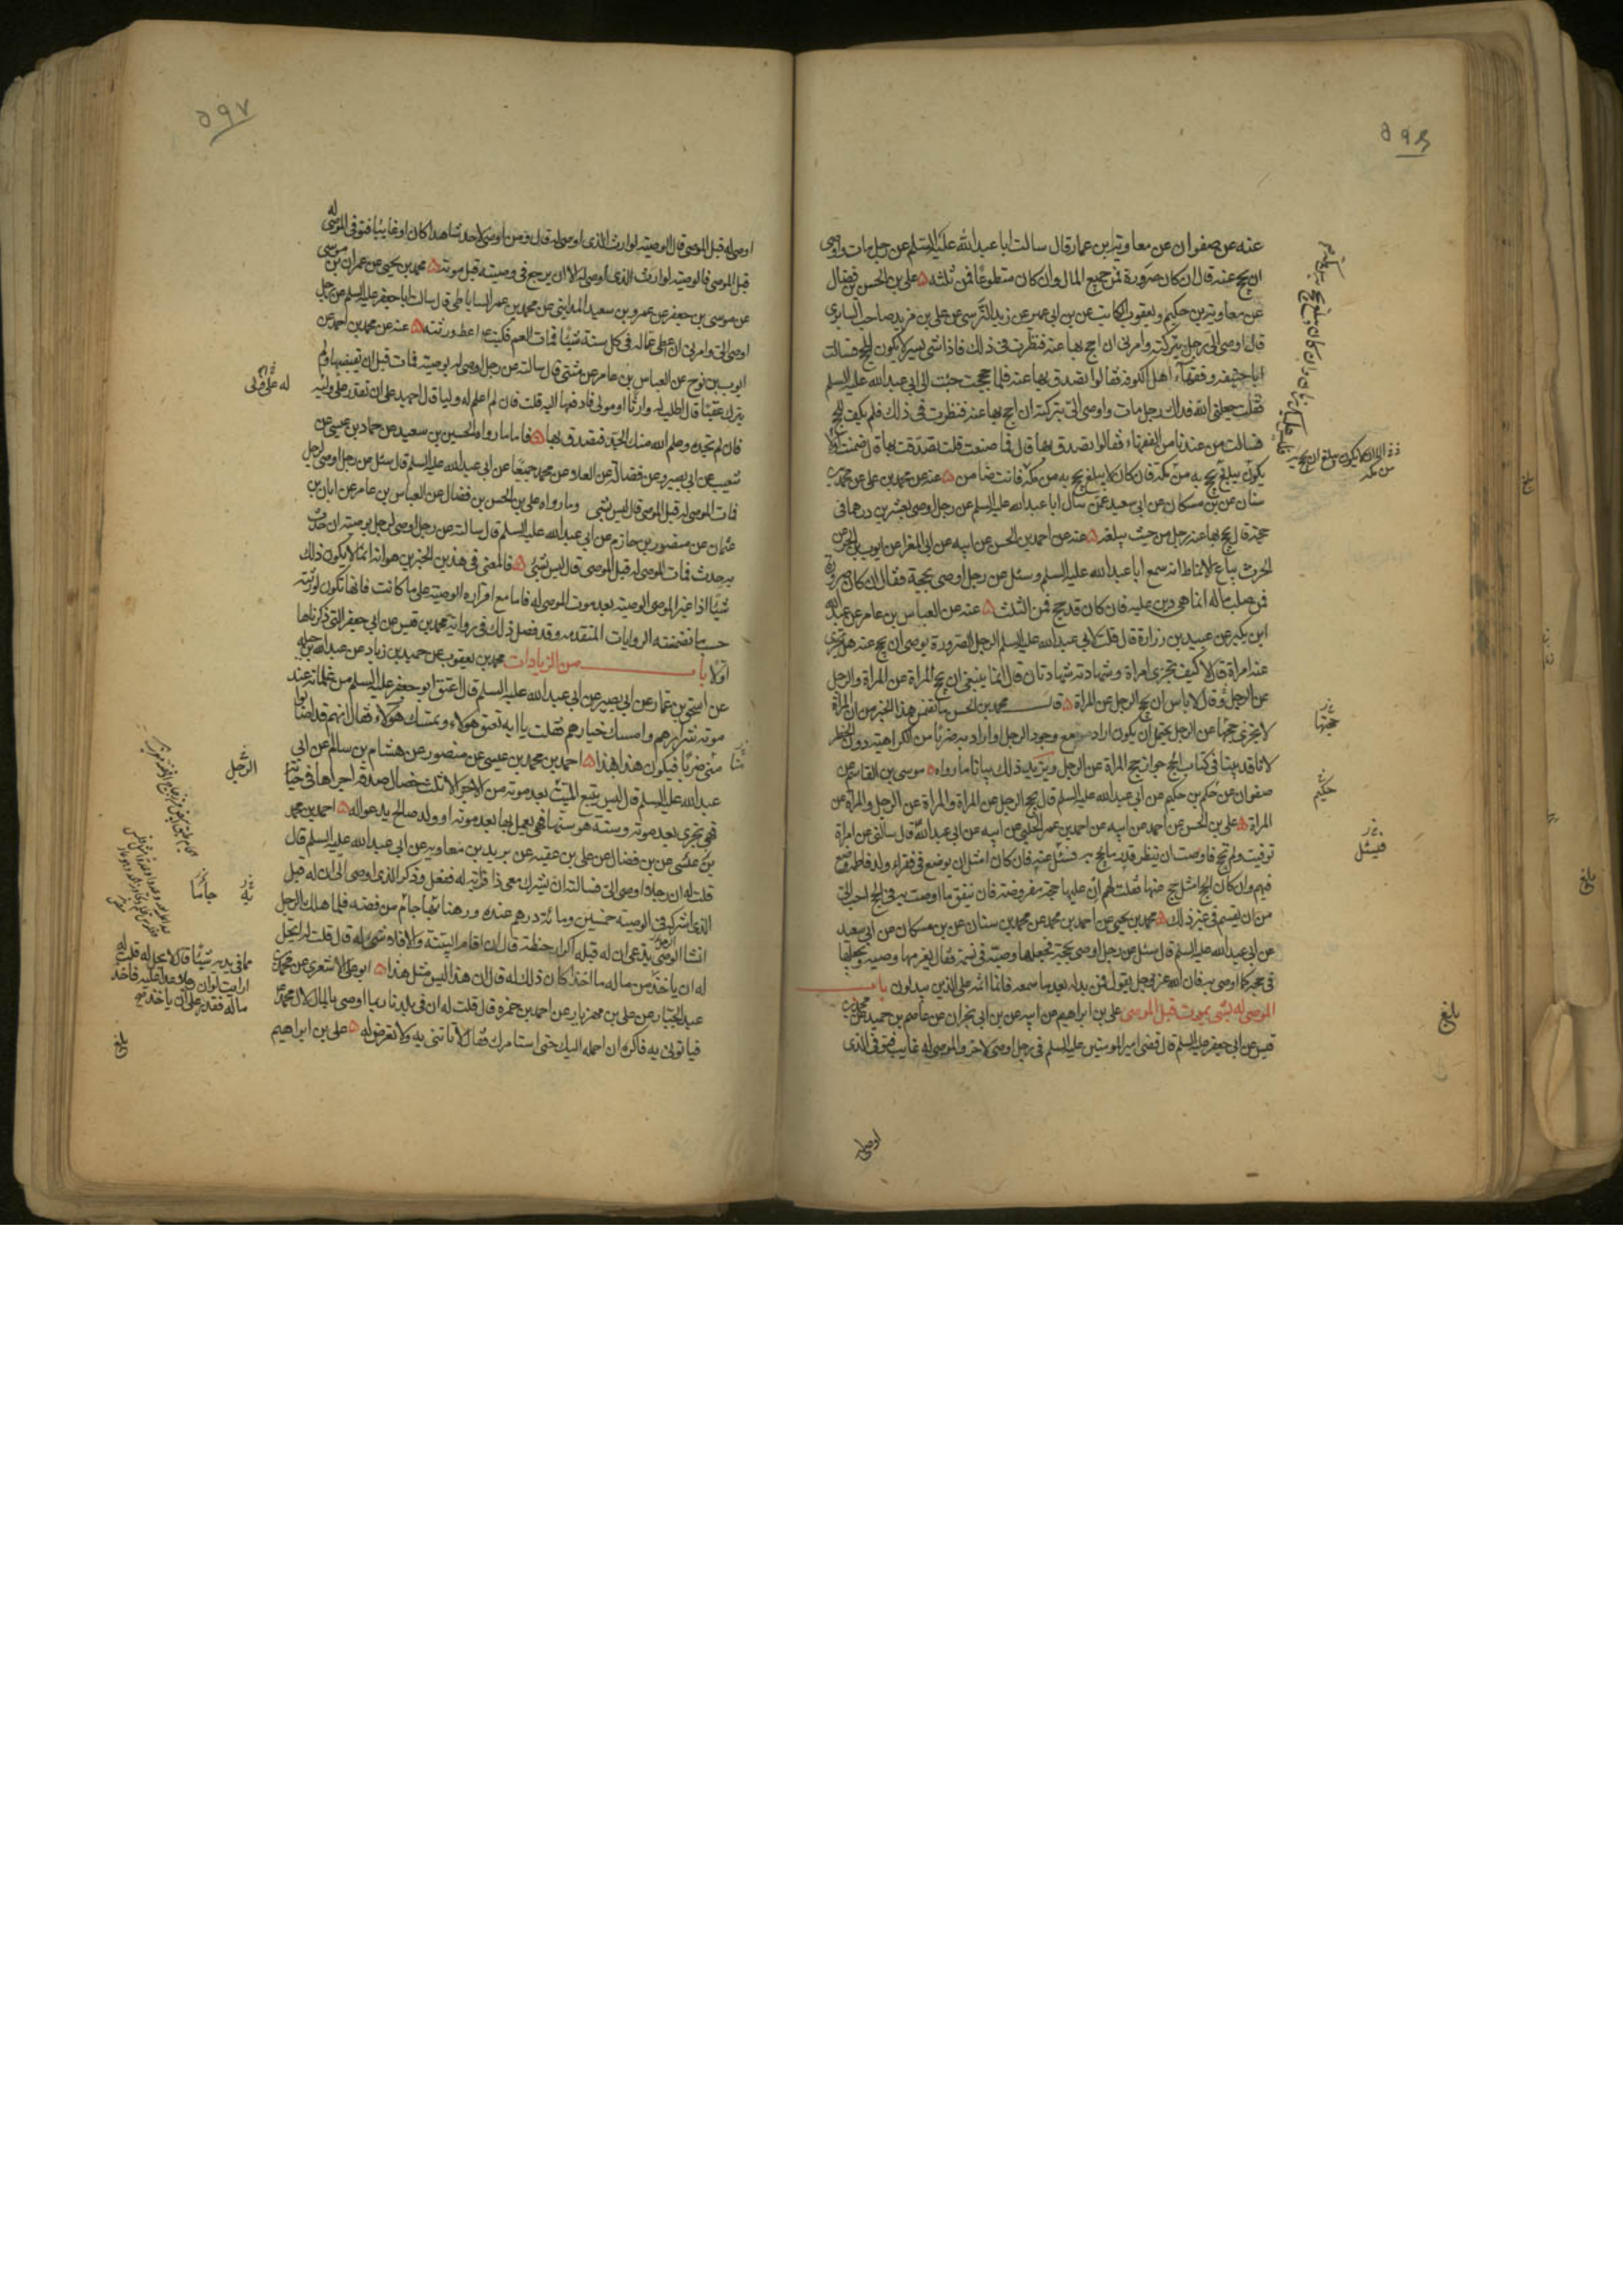 عنه عن صفوان عن معاوية بن عمار قال سالت ابا عبد الله عليه السلم عن رجل مات واوصى
ان يحج عنه قال ان كان صرورة فمن جميع المال وان كان متطوعا فمن ثلثه ۵ على بن الحسن بن فضال
عن معاوية بن حكيم ويعقوب الكاتب عن بن ابى عمير عن زيد النرسى عن على بن مزيد صاحب السابرى
قال اوصى الى رجل بتركته وامرنى ان احج بها عنه فنظرت فى ذلك فاذا شئ يسير لا يكون للحج فسالت
ابا حنيفه وفقهاء اهل الكوفه فقالوا تصدق بها عنه فلما حججت جئت الى ابى عبد الله عليه السلم
فقلت جعلنى الله فداك رجل مات واوصى الى بتركته ان احج بها عنه فنظرت فى ذلك فلم يكف للحج
فسالت من عندنا من الفقهاء فقالوا تصدق بها قال فما صنعت قلت تصدقت بها قال ضمنت الا
يكون يبلغ يحج به من مكه فان كان لا يبلغ يحج به من مكه فانت ضامن ۵ عنه عن محمد بن على عن محمد بن
سنان عن بن مسكان عن ابى سعيد عمن سال ابا عبد الله عليه السلم عن رجل اوصى بعشرين درهما فى
حجة قال يحج بها عنه رجل من حيث يبلغه ۵ عنه عن احمد بن الحسن عن ابيه عن ابى المغرا عن ايوب بن الحر عن
الحرث بياع الانماط انه سمع ابا عبد الله عليه السلم وسئل عن رجل اوصى بحجة فقال ان كان صرورة
فمن صلب ماله انما هى دين عليه فان كان قد حج فمن الثلث ۵ عنه عن العباس بن عامر عن عبد الله
ابن بكير عن عبيد بن زرارة قال قلت لابى عبد الله عليه السلم الرجل الصرورة يوصى ان يحج عنه هل تجزى
عنه امراة قال لا كيف تجزى امراة وشهادته شهادتان قال انما ينبغى ان تحج المراة عن المراة والرجل
عن الرجل وقال لا باس ان يحج الرجل عن المراة ۵ قال محمد بن الحسن ما تضمن هذا الخبر من ان المراة
لا تجزى حجتها عن الرجل يحتمل ان يكون اراد مع وجود الرجل او اراد به ضربا من الكراهية دون الحظر
لانا قد بينا فى كتاب الحج جواز حج المراة عن الرجل ويزيد ذلك بيانا ما رواه ۵ موسى بن القاسم عن
صفوان عن حكم بن حكيم عن ابى عبد الله عليه السلم قال يحج الرجل عن المراة والمراة عن الرجل والمراة عن
المراة ۵ على بن الحسن عن احمد عن ابيه عن احمد بن عمر الحلبى عن ابيه عن ابى عبد الله قال سالنى عن امراة
توفيت ولم تحج فاوصت ان ينظر قدر ما يحج به فسئل عنه فان كان امثل ان يوضع فى فقراء ولد فاطمه وضع
فيهم وان كان الحج امثل حج عنها فقلت لهم ان عليها حجة مفروضة فان ينفق ما اوصت به فى الحج احب الى
من ان يقسم فى غير ذلك ۵ محمد بن يحيى عن احمد بن محمد عن محمد بن سنان عن بن مسكان عن ابى سعيد
عن ابى عبد الله عليه السلم قال سئل عن رجل اوصى بحجة فجعلها وصيه فى نسمة فقال يغرمها وصيه ويجعلها
فى حجة كما اوصى به فان الله عز وجل يقول فمن بدله بعد ما سمعه فانما اثمه على الذين يبدلونه باب
الموصى له بشئ يموت قبل الموصى على بن ابراهيم عن ابيه عن بن ابى نجران عن عاصم بن حميد عن محمد بن
قيس عن ابى جعفر عليه السلم قال قضى امير المومنين عليه السلم فى رجل اوصى لاخر والموصى له غايب فتوفى الذى
اوصى
حجتها
حكيم
فيسئل
بلغ
۵۹۷
اوصى له قبل الموصى قال الوصيه لوارث الذى اوصى له قال ومن اوصى لاحد شاهدا كان او غايبا فتوفى الموصى له
قبل الموصى فالوصيه لوارث الذى اوصى له الا ان يرجع فى وصيته قبل موته ۵ محمد بن يحيى عن عمران بن موسى
عن موسى بن جعفر عن عمرو بن سعيد المداينى عن محمد بن عمر الساباطى قال سالت ابا جعفر عليه السلم عن رجل
اوصى الى وامرنى ان اعطى عما له فى كل سنة شيئا فمات العم فكتب اعط ورثته ۵ عنه عن محمد بن احمد عن
ايوب بن نوح عن العباس بن عامر عن مثنى قال سالته عن رجل اوصى له بوصيه فمات قبل ان يقبضها ولم
يترك عقبا قال اطلب له وارثا او مولى فادفعها اليه قلت فان لم اعلم له وليا قال اجهد على ان تقدر على وليه
فان لم تجده وعلم الله منك الجد فتصدق بها ۵ فاما ما رواه الحسين بن سعيد عن حماد بن عيسى عن
شعيب عن ابى بصير وعن فضالة عن العلا عن محمد جميعا عن ابى عبد الله عليه السلم قال سئل عن رجل اوصى لرجل
فمات الموصى له قبل الموصى قال ليس بشى وما رواه على بن الحسن بن فضال عن العباس بن عامر عن ابان بن
عثمان عن منصور بن حازم عن ابى عبد الله عليه السلم قال سالته عن رجل اوصى لرجل بوصيته ان حدث
به حدث فمات الموصى له قبل الموصى قال ليس بشى ۵ فالمعنى فى هذين الخبرين هو انه انما لا يكون ذلك
شيئا اذا غير الموصى الوصيه بعد موت الموصى له فاما مع اقراره الوصيه على ما كانت فانها تكون لورثته
حسب ما تضمنته الروايات المتقدمه وقد فصل ذلك فى رواية محمد بن قيس عن ابى جعفر التى ذكرناها
اولا باب من الزيادات محمد بن يعقوب عن حميد بن زياد عن عبد الله بن جبله
عن اسحق بن عمار عن ابى بصير عن ابى عبد الله عليه السلم قال اعتق ابو جعفر عليه السلم من غلمانه عند
موته شرارهم وامسك خيارهم فقلت يا ابه تعتق هولاء وتمسك هولاء فقال انهم قد اصابوا
منى ضربا فيكون هذا بهذا ۵ احمد بن محمد بن عيسى عن منصور عن هشام بن سالم عن ابى
عبد الله عليه السلم قال ليس يتبع الميت بعد موته من الاجر الا ثلث خصال صدقه اجراها فى حياته
فهى تجرى بعد موته وسنة هو سنها فهى يعمل بها بعد موته او ولد صالح يدعو له ۵ احمد بن محمد
بن عيسى عن بن فضال عن على بن عقبه عن بريد بن معاويه عن ابى عبد الله عليه السلم قال
قلت له ان رجلا اوصى الى فسالته ان يشرك معى ذا قرابة له ففعل وذكر الذى اوصى الى ان له قبل
الذى اشركه فى الوصيه خمسين ومائة درهم عنده ورهنا بها جام من فضه فلما هلك الرجل
انشا الوصى يدعى ان له قبله اكرار حنطة قال ان اقام البينة والا فلا شئ له قال قلت له ايحل
له ان ياخذ من ماله ما اخذ كان ذلك له قال ان هذا ليس مثل هذا ۵ ابو على الاشعرى عن محمد بن
عبد الجبار عن على بن مهزيار عن احمد بن حمزه قال قلت له ان فى بلدنا ربما اوصى بالمال لال محمد
فياتونى به فاكره ان احمله اليك حتى استامرك فقال لا تاتنى به ولا تعرض له ۵ على بن ابراهيم
الرجل
جاما
مما فى يديه شيئا قال لا يحل له قلت له
ارايت لو ان رجلا عدا عليه فاخذ
ماله فقدر على ان ياخذ
بلغ